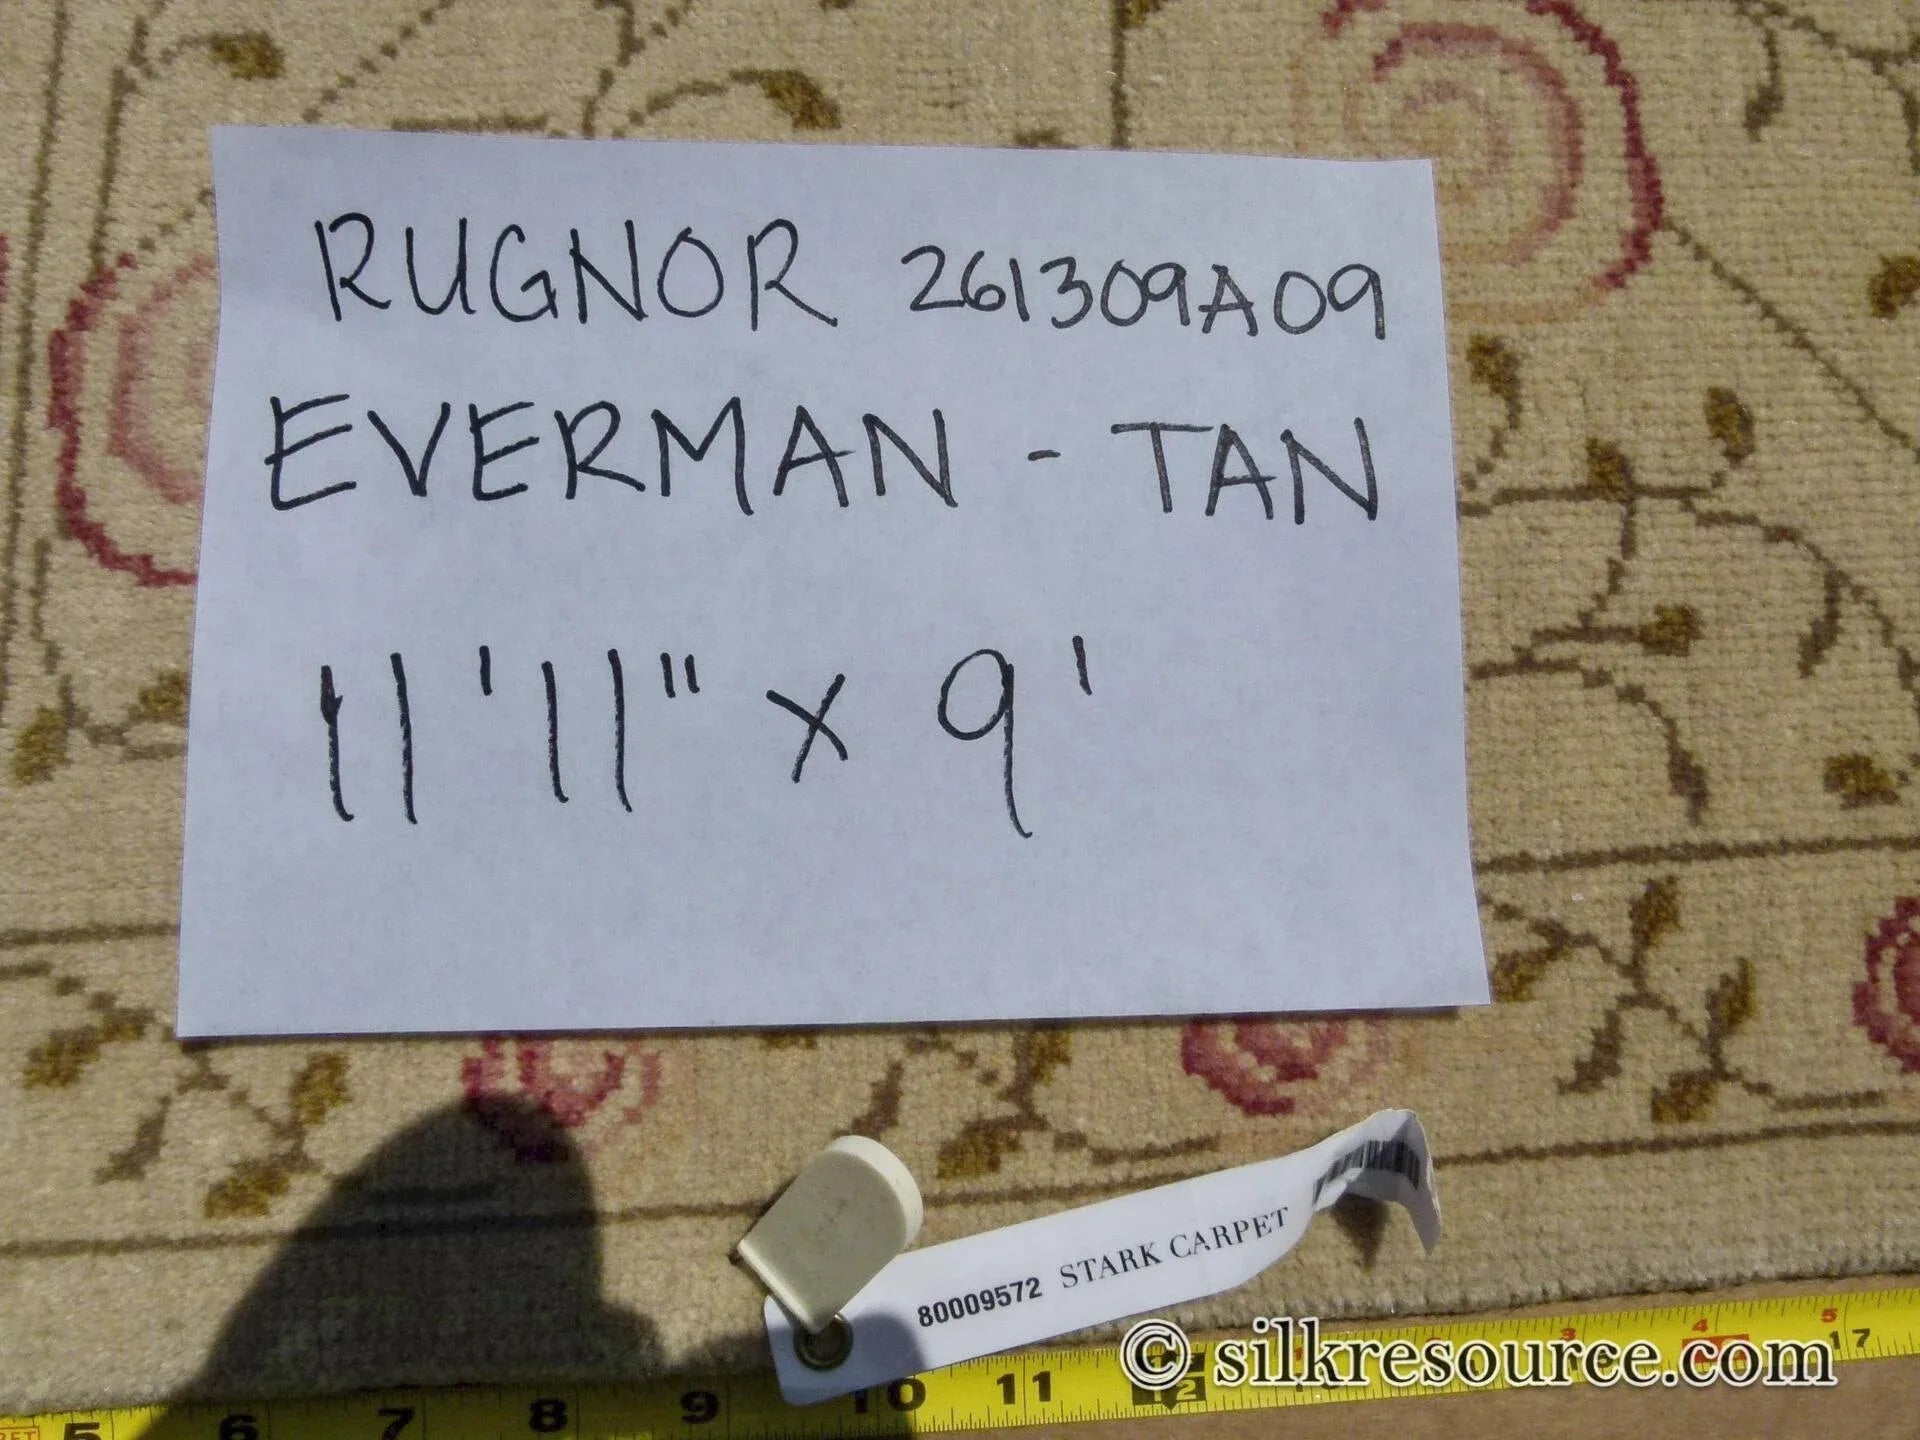 RUGNOR 261309A09
EVERMAN - TAN
11'11" x 9'
80009572 STARK CARPET
© silkresource.com
5 6 7 8 9 10 11 12 3 4 5 17